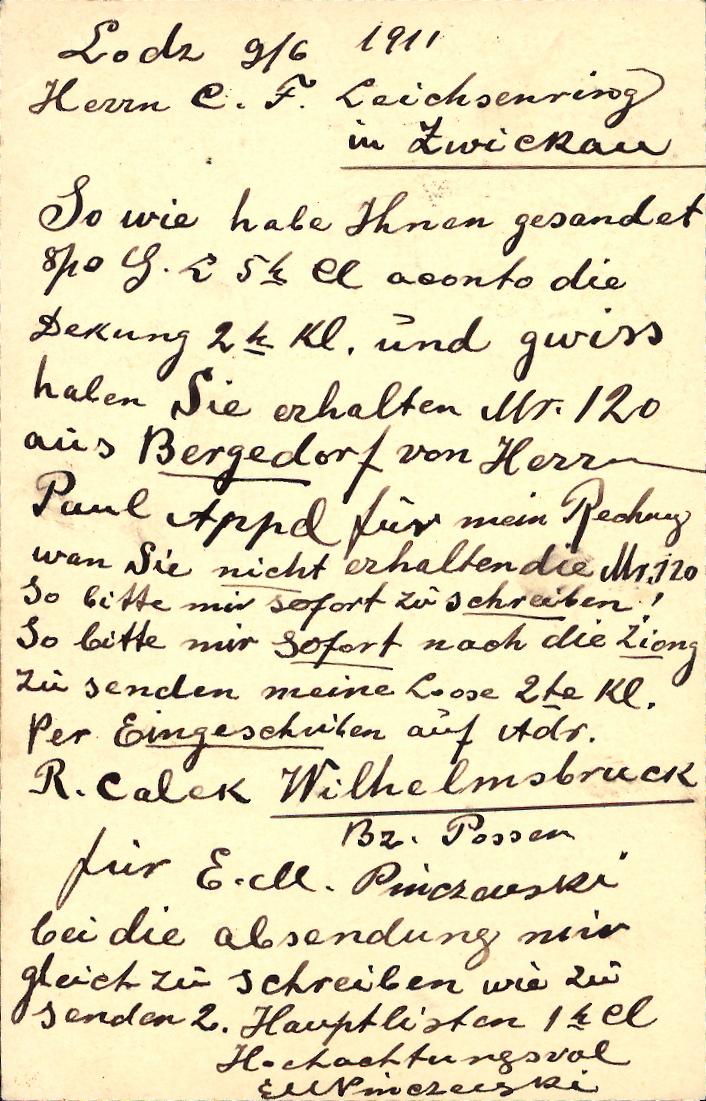 Lodz 9/6 1911
Herrn C. F. Leichsenring
in Zwickau
So wie habe Ihnen gesandet
5 Cl aconto die
Dekung 2 Kl. und gwiss
haben Sie erhalten Mr. 120
aus Bergedorf von Herrn
Paul Appel für mein Rechnug
wan Sie nicht erhalten die Mr. 120
So bitte mir sofort zu schreiben!
So bitte mir sofort nach die Ziong
zu senden meine Loose 2te Kl.
Per Eingeschriben auf Adr.
R. Calek Wilhelmsbruck
Bz. Possen
für E. M. Pinczewski
bei die absendung mir
gleich zu schreiben wie zu
senden 2. Hauptlisten 1 Cl
Hochachtungsvol
EM Pinczewski